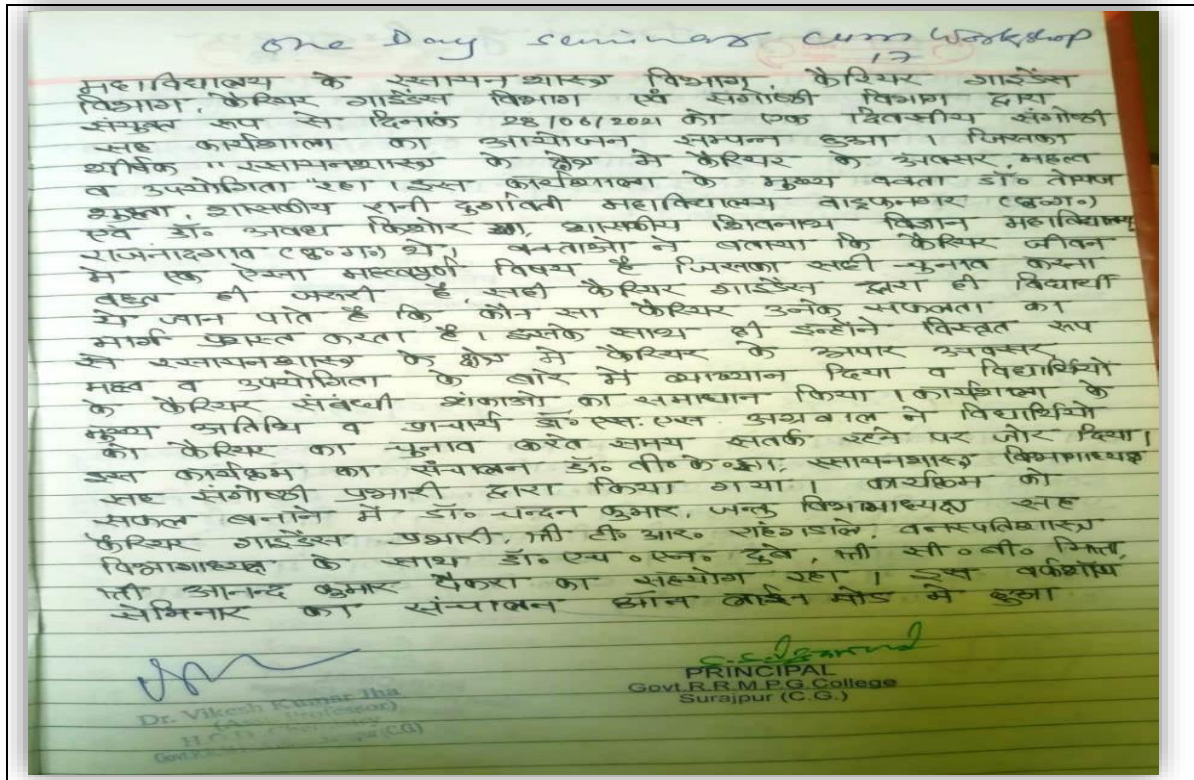 one Day seminar cum Workshop
17
महाविद्यालय के रसायनशास्त्र विभाग, कैरियर गाइडेंस
विभाग, कैरियर गाइडेंस विभाग एवं संगोष्ठी विभाग द्वारा
संयुक्त रूप से दिनांक 28/06/2021 को एक दिवसीय संगोष्ठी
सह कार्यशाला का आयोजन सम्पन्न हुआ । जिसका
शीर्षक "रसायनशास्त्र के क्षेत्र में कैरियर के अवसर, महत्व
व उपयोगिता" रहा । इस कार्यशाला के मुख्य वक्ता डॉ०
शुक्ला, शासकीय रानी दुर्गावती महाविद्यालय वाड्रफनगर (छ०ग०)
एवं डॉ० अवध किशोर झा, शासकीय शिवनाथ विज्ञान महाविद्यालय
राजनांदगाव (छ०ग०) थे। वक्ताओं ने बताया कि कैरियर जीवन
में एक ऐसा महत्वपूर्ण विषय है जिसका सही चुनाव करना
बहुत ही जरूरी है, सही कैरियर गाइडेंस द्वारा ही विद्यार्थी
ये जान पाते है कि कौन सा कैरियर उनके सफलता का
मार्ग प्रशस्त करता है। इसके साथ ही इन्होंने विस्तृत रूप
से रसायनशास्त्र के क्षेत्र में कैरियर के अपार अवसर
महत्व व उपयोगिता के बारे में व्याख्यान दिया व विद्यार्थियो
के कैरियर संबंधी शंकाओ का समाधान किया । कार्यशाला के
मुख्य अतिथि व प्राचार्य डॉ० एस. एस. अग्रवाल ने विद्यार्थियो
को कैरियर का चुनाव करते समय सतर्क रहने पर जोर दिया।
इस कार्यक्रम का संचालन डॉ० वी० के० झा, रसायनशास्त्र विभागाध्यक्ष
सह संगोष्ठी प्रभारी द्वारा किया गया । कार्यक्रम को
सफल बनाने में डॉ० चन्दन कुमार, जन्तु विभागाध्यक्ष सह
कैरियर गाइडेंस प्रभारी, श्री टी० आर० राहंगडाले, वनस्पतिशास्त्र
विभागाध्यक्ष के साथ डॉ० एच० एन० दुबे, श्री सी० बी० मिश्रा,
श्री आनन्द कुमार पैकरा का सहयोग रहा । इस वर्कशॉप
सेमिनार का संचालन ऑन लाईन मोड में हुआ
PRINCIPAL
Govt.R.R.M.P.G.College
Surajpur (C.G.)
Dr. Vikesh Kumar Jha
(Asst. Professor)